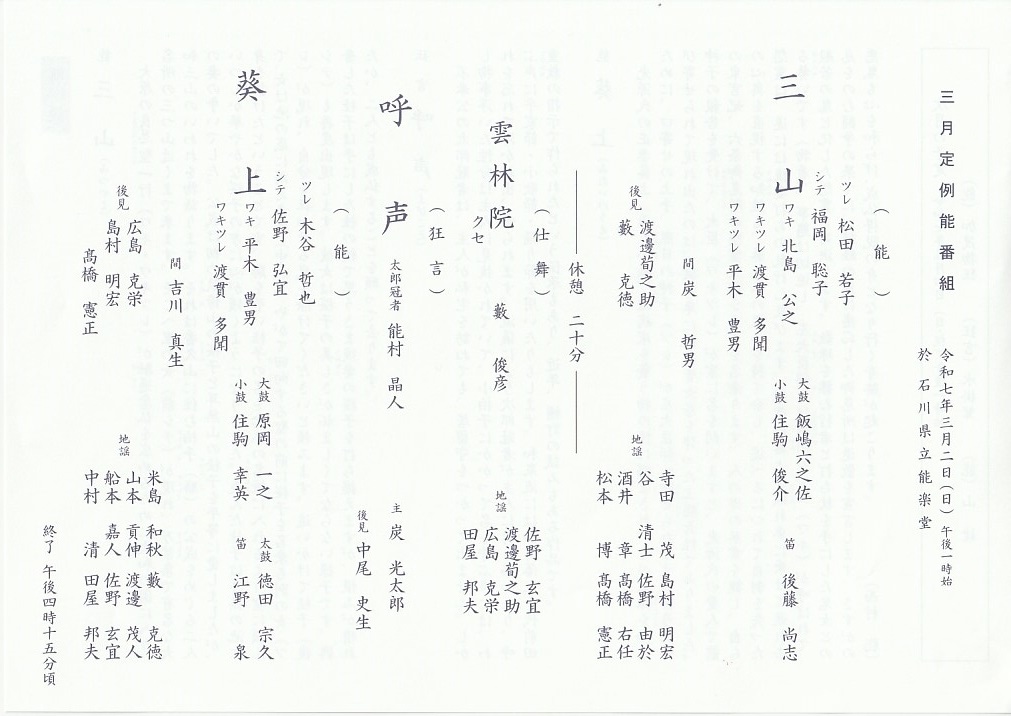 三月定例能番組
令和七年三月二日（日）午後一時始
於 石川県立能楽堂
（能）
三山
ツレ 松田 若子
シテ 福岡 聡子
ワキ 北島 公之
ワキツレ 渡貫 多聞
ワキツレ 平木 豊男
大鼓 飯嶋六之佐
小鼓 住駒 俊介
笛 後藤 尚志
間 炭 哲男
後見 渡邊荀之助
藪 克徳
地謡
寺田 茂 島村 明宏
谷 清士 佐野 由於
酒井 章 髙橋 右任
松本 博 髙橋 憲正
休憩 二十分
（仕舞）
雲林院 クセ
藪 俊彦
地謡
佐野 玄宜
渡邊荀之助
広島 克栄
田屋 邦夫
（狂言）
呼声
太郎冠者 能村 晶人
主 炭 光太郎
後見 中尾 史生
（能）
葵上
ツレ 木谷 哲也
シテ 佐野 弘宜
ワキ 平木 豊男
ワキツレ 渡貫 多聞
大鼓 原岡 一之
小鼓 住駒 幸英
太鼓 徳田 宗久
笛 江野 泉
間 吉川 真生
後見 広島 克栄
島村 明宏
髙橋 憲正
地謡
米島 和秋 藪 克徳
山本 貢伸 渡邊 茂人
船本 嘉人 佐野 玄宜
中村 清 田屋 邦夫
終了 午後四時十五分頃